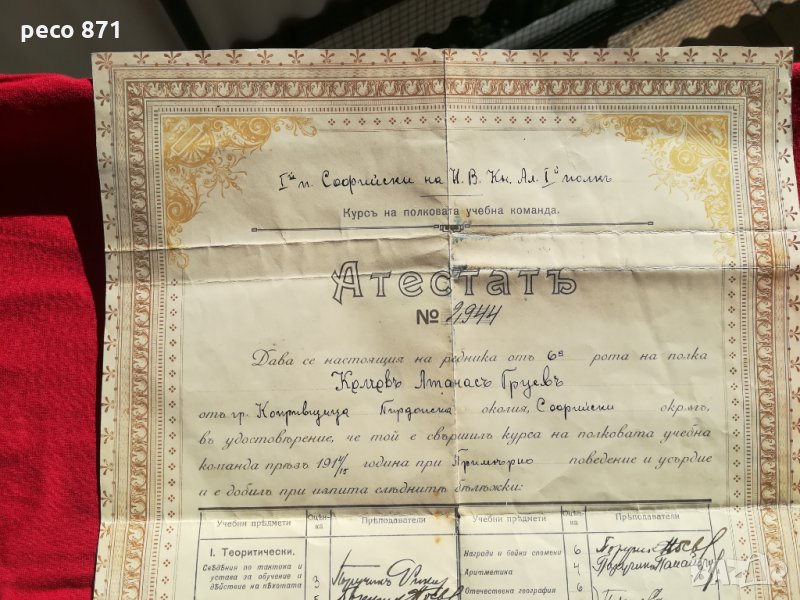 peco 871
Iй п. Софийски на Н. В. Кн. Ал. Iй полкъ
Курсъ на полковата учебна команда.
Атестатъ
№ 2944
Дава се настоящия на редника отъ 6а рота на полка
Атанасъ Груевъ
отъ гр. Копривщица Пирдопска околия, Софийски окрѫгъ,
въ удостовѣрение, че той е свършилъ курса на полковата учебна
команда прѣзъ 1914/15 година при Примѣрно поведение и усърдие
и е добилъ при изпита слѣднитѣ бѣлѣжки:
Учебни прѣдмети Оцѣнка Прѣподаватели Учебни прѣдмети Оцѣнка Прѣподаватели
I. Теоритически.
Свѣдѣния по тактика и
устава за обучение и
дѣйствие на пѣхотата 3 Поручикъ
Награди и бойни спомени 6
Аритметика 4
Отечествена география 6